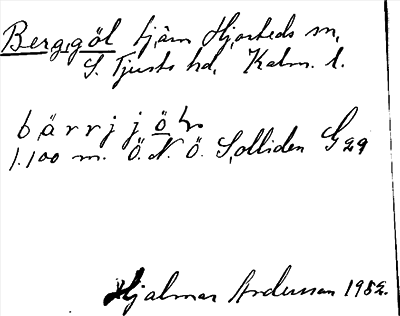 Berg,göl tjärn Hjorteds sn,
S. Tjusts hd, Kalm. l.
bärrjjö
1.100 m. Ö.N.Ö. Solliden G 29
Hjalmar Andersson 1952.